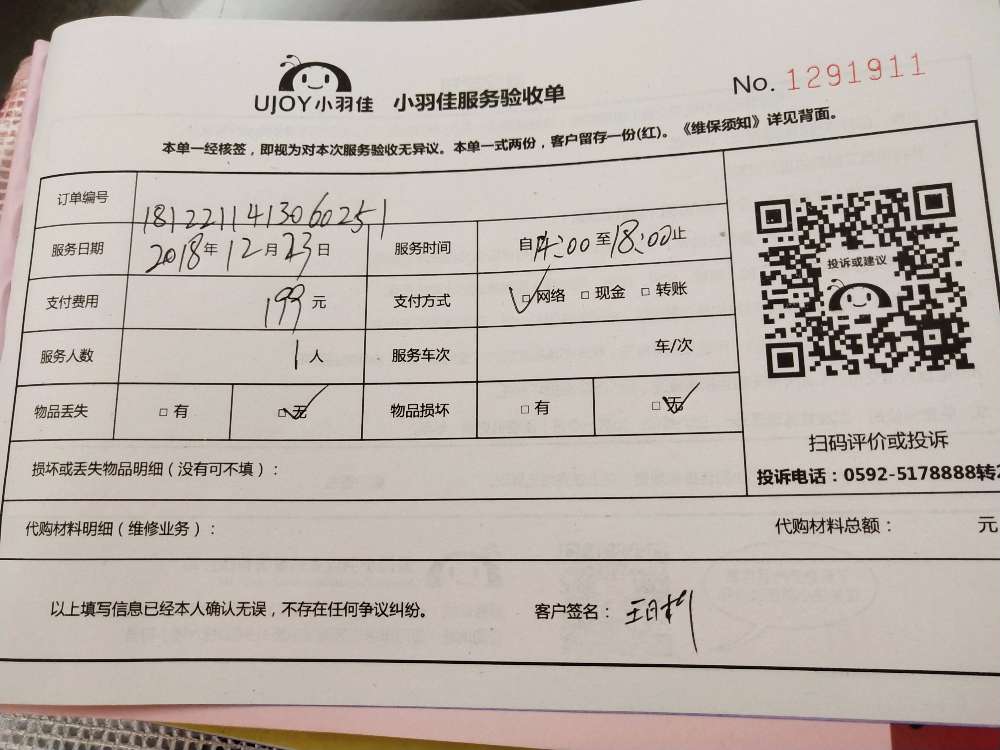 UJOY小羽佳 小羽佳服务验收单 No. 1291911
本单一经核签，即视为对本次服务验收无异议。本单一式两份，客户留存一份(红)。《维保须知》详见背面。
订单编号 181221141306025 1
服务日期 2018年12月23日 服务时间 自14:00至18:00止
支付费用 199元 支付方式 □网络 □现金 □转账
服务人数 1人 服务车次 车/次
物品丢失 □有 □无 物品损坏 □有 □无
损坏或丢失物品明细（没有可不填）：
投诉或建议
扫码评价或投诉
投诉电话：0592-5178888转2
代购材料明细（维修业务）： 代购材料总额： 元
以上填写信息已经本人确认无误，不存在任何争议纠纷。 客户签名：